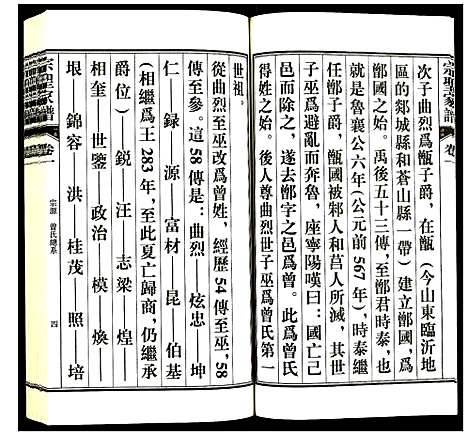 次子曲烈爲甑子爵，在甑（今山東臨沂地
區的郯城縣和蒼山縣一帶）建立鄫國，
鄫國之始。禹後五十三傳，至鄫君時泰，也
就是魯襄公六年（公元前567年），時泰繼
任鄫子爵，甑國被邾人和莒人所滅，其世
子巫爲避亂而奔魯，座寧陽嘆曰：國亡己
邑而除之，遂去鄫字之邑爲曾。此爲曾氏
得姓之始。後人尊曲烈世子巫爲曾氏第一
宗聖家譜
卷一
世祖。
從曲烈至巫改爲曾姓，經歷54傳至巫，58
傳至參。這58傳是：曲烈——炫忠——坤
仁——録——源——富材——昆——伯基
（相繼爲王283年，至此夏亡歸商，仍繼承
爵位）——鋭——汪——志梁——煌——
相奎——世鑒——政治——模——煥——
垠——錦容——洪——桂茂——照——培
宗聖家譜
卷一
宗源
曾氏總系
四